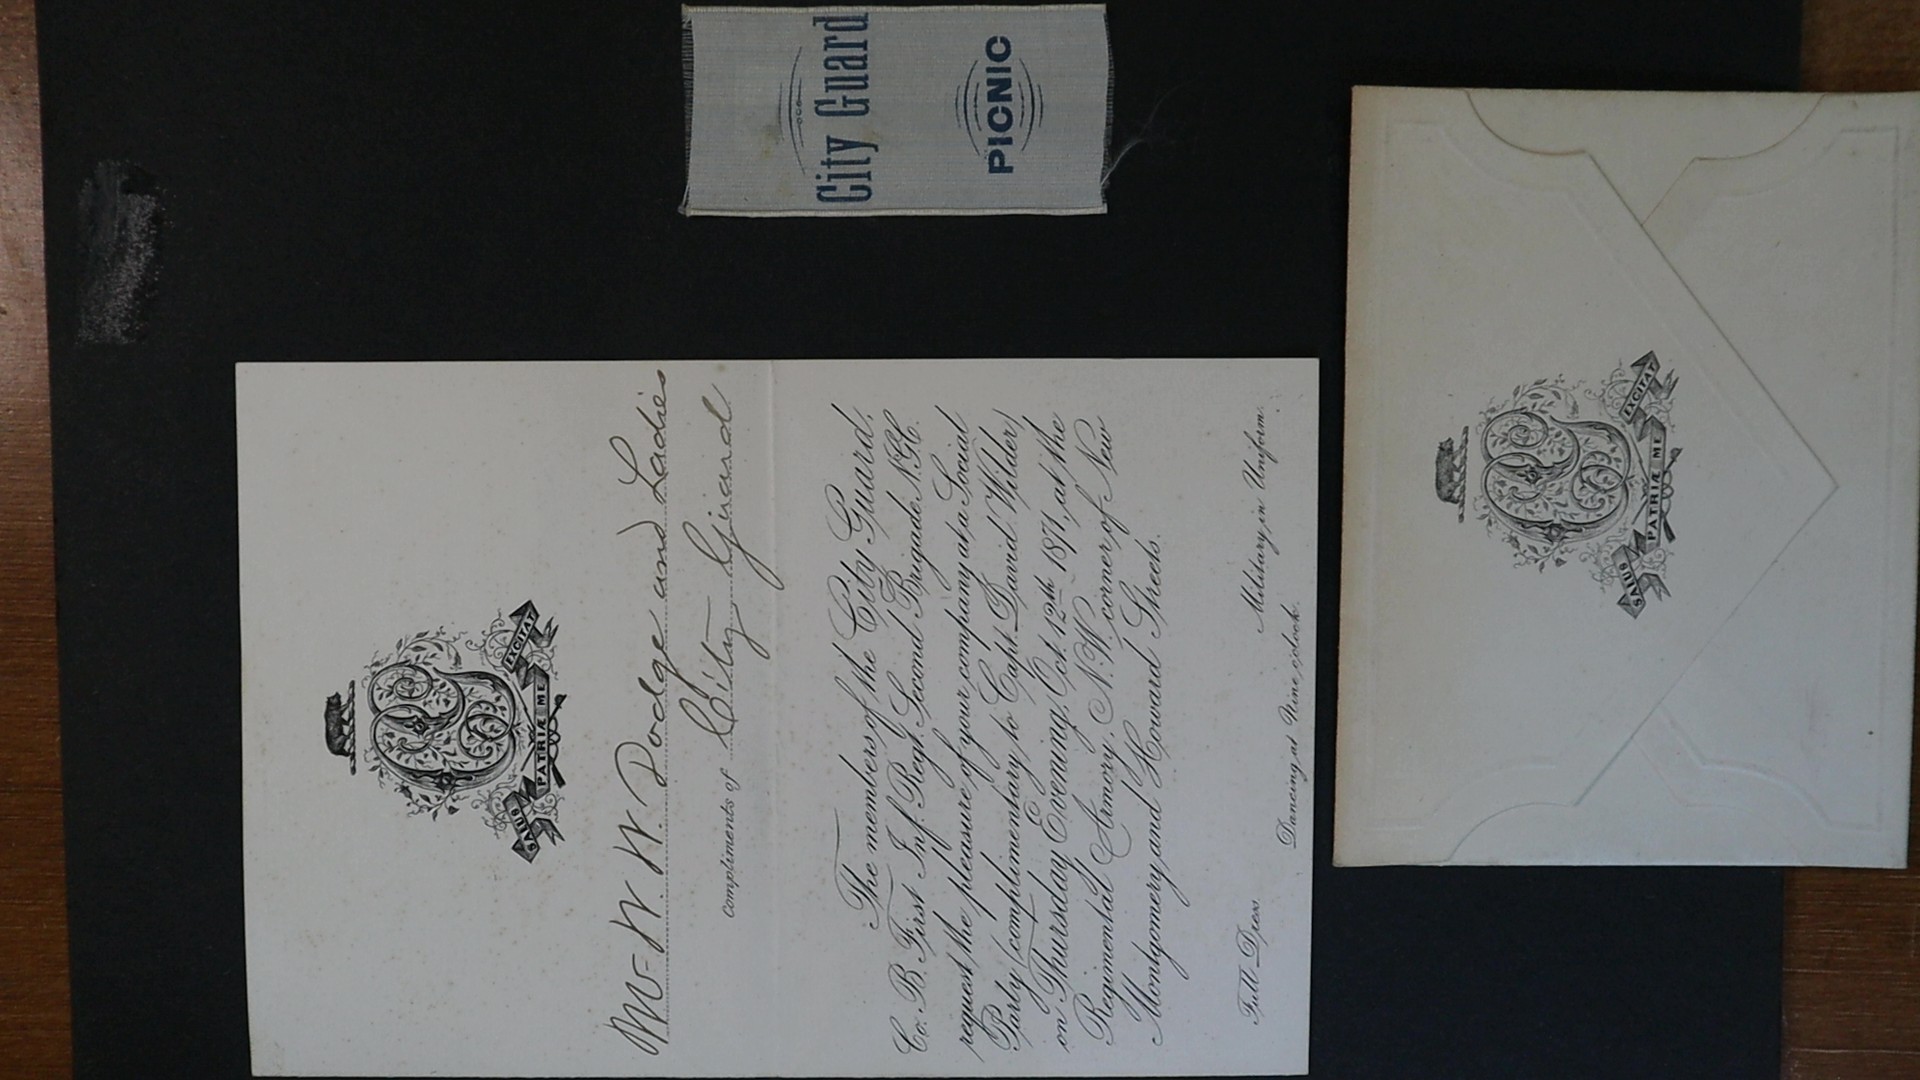 SALUS PATRIÆ ME EXCITAT
Mr W. W. Dodge and Ladies
Compliments of City Guard
The members of the City Guard,
Co. B. First Inf. Regt. Second Brigade N.G.C.
request the pleasure of your company at a Social
Party (complimentary to Capt. David Wilder)
on Thursday Evening, Oct. 12th 1871, at the
Regimental Armory, N.W. corner of New
Montgomery and Howard Streets.
Full Dress. Military in Uniform.
Dancing at Nine o'clock.
City Guard
PICNIC
SALUS PATRIÆ ME EXCITAT